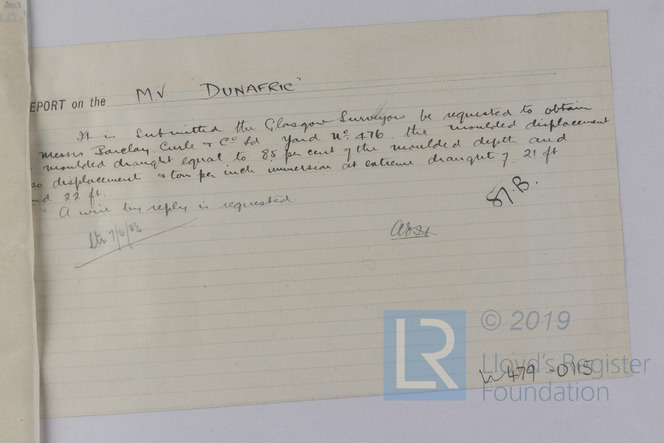 EPORT on the MV DUNAFRIC
It is submitted the Glasgow Surveyors be requested to obtain
Messrs Barclay Curle & Co Ld Yard No. 476 the moulded displacement
moulded draught equal to 85 per cent of the moulded depth and
so displacement & tons per inch immersion at extreme draught of 21 ft
nd 22 ft.
A wire by reply is requested
LR
© 2019
Lloyd's Register
Foundation
W479-0115